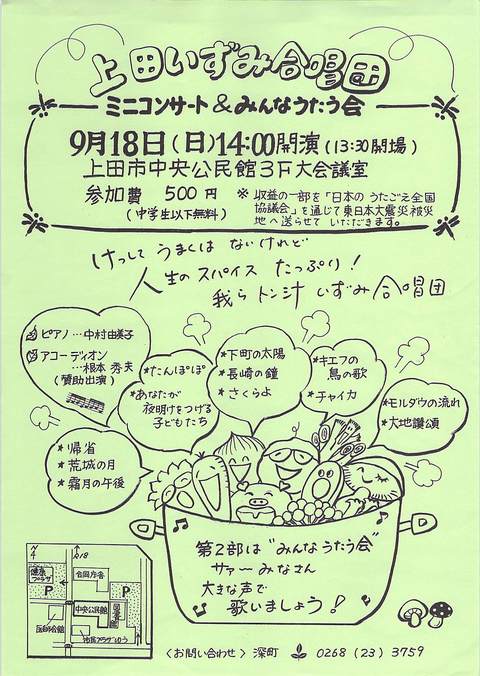 上田いずみ合唱団
ミニコンサート&みんなうたう会
9月18日(日)14:00開演(13:30開場)
上田市中央公民館3F大会議室
参加費 500円
(中学生以下無料)
※収益の一部を「日本のうたごえ全国
協議会」を通じて東日本大震災被災
地へ送らせていただきます。
けっして うまくは ないけれど
人生のスパイス たっぷり!
我ら トン汁 いずみ 合唱団
ピアノ…中村由美子
アコーディオン
…根本 秀夫
(賛助出演)
*たんぽぽ
*あなたが
夜明けをつげる
子どもたち
*下町の太陽
*長崎の鐘
*さくらよ
*キエフの
鳥の歌
*チャイカ
*モルダウの流れ
*大地讃頌
*帰省
*荒城の月
*霜月の午後
第2部は"みんなうたう会"
サァーみなさん
大きな声で
歌いましょう!
N
4
18
合同庁舎
P
P
中央公民館
図書館
医師会館
市民プラザゆう
〈お問い合わせ〉深町 0268(23)3759